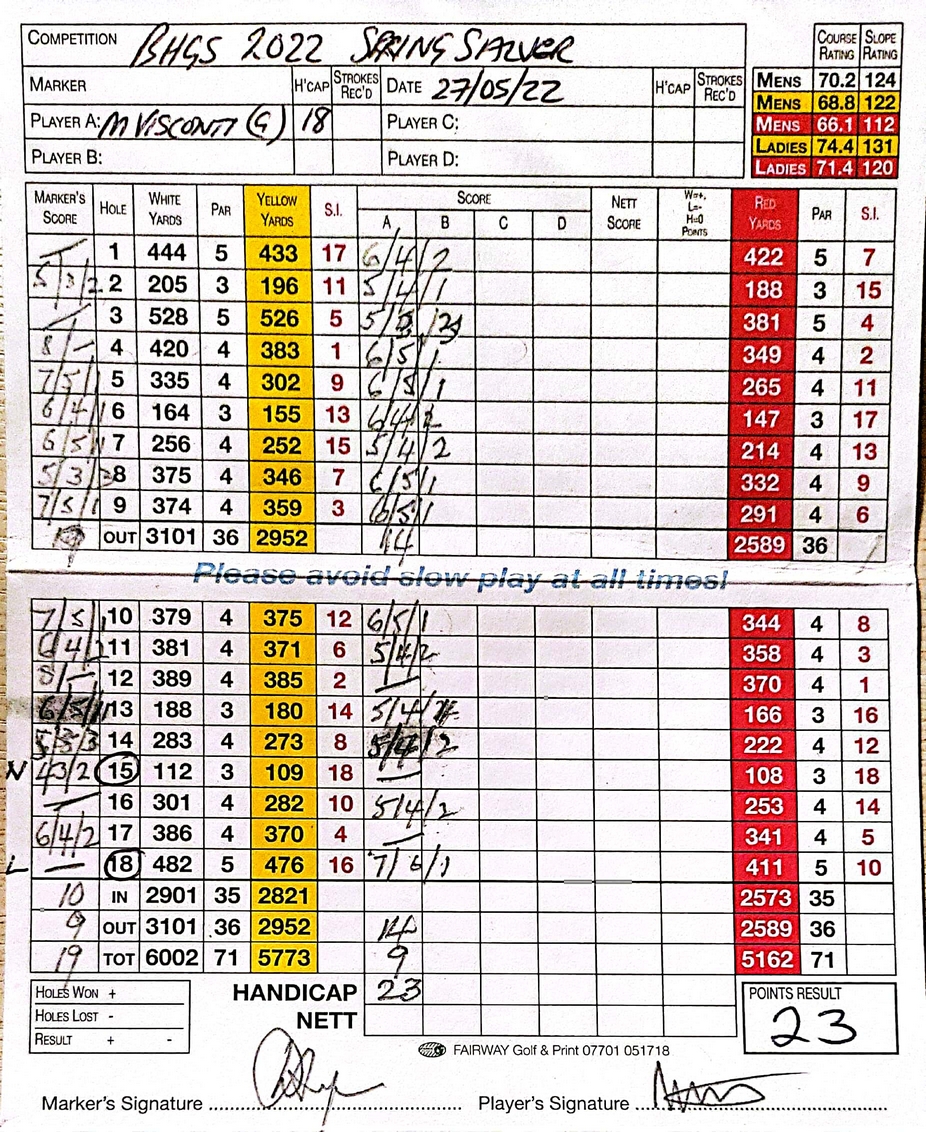 COMPETITION BHGS 2022 SPRING SALVER
COURSE RATING SLOPE RATING
MARKER H'CAP STROKES REC'D DATE 27/05/22 H'CAP STROKES REC'D
PLAYER A: M VISCONTI (G) 18 PLAYER C:
PLAYER B: PLAYER D:
MENS 70.2 124
MENS 68.8 122
MENS 66.1 112
LADIES 74.4 131
LADIES 71.4 120
MARKER'S SCORE HOLE WHITE YARDS PAR YELLOW YARDS S.I. SCORE A B C D NETT SCORE W=+, L=- H=0 POINTS RED YARDS PAR S.I.
— 1 444 5 433 17 6/4/2 422 5 7
5/3/2 2 205 3 196 11 5/4/1 188 3 15
— 3 528 5 526 5 5/ 381 5 4
8/— 4 420 4 383 1 6/5/1 349 4 2
7/5/1 5 335 4 302 9 6/5/1 265 4 11
6/4/1 6 164 3 155 13 6/4/ 147 3 17
6/5/1 7 256 4 252 15 5/4/2 214 4 13
5/3/3 8 375 4 346 7 6/5/1 332 4 9
7/5/1 9 374 4 359 3 6/5/1 291 4 6
OUT 3101 36 2952 14 2589 36
Please avoid slow play at all times!
7/5/1 10 379 4 375 12 6/5/1 344 4 8
6/4/2 11 381 4 371 6 5/4/2 358 4 3
8/— 12 389 4 385 2 — 370 4 1
6/5/1 13 188 3 180 14 5/4/ 166 3 16
14 283 4 273 8 5/4/2 222 4 12
N 43/2 15 112 3 109 18 — 108 3 18
— 16 301 4 282 10 5/4/2 253 4 14
6/4/2 17 386 4 370 4 — 341 4 5
L — 18 482 5 476 16 7/6/1 411 5 10
10 IN 2901 35 2821 2573 35
9 OUT 3101 36 2952 14 2589 36
19 TOT 6002 71 5773 9 5162 71
HOLES WON + HANDICAP 23 POINTS RESULT
HOLES LOST - NETT 23
RESULT + -
FAIRWAY Golf & Print 07701 051718
Marker's Signature Player's Signature